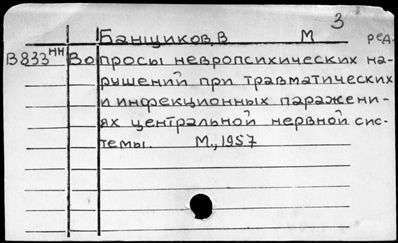 3
Банщиков, В М ред.
В833нн Вопросы невропсихических на-
рушений при травматических
и инфекционных паражени-
ях центральной нервной сис-
темы. М., 1957